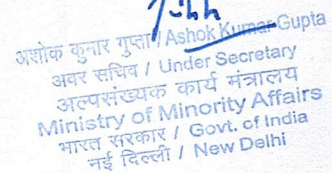 अशोक कुमार गुप्ता / Ashok Kumar Gupta
अवर सचिव / Under Secretary
अल्पसंख्यक कार्य मंत्रालय
Ministry of Minority Affairs
भारत सरकार / Govt. of India
नई दिल्ली / New Delhi